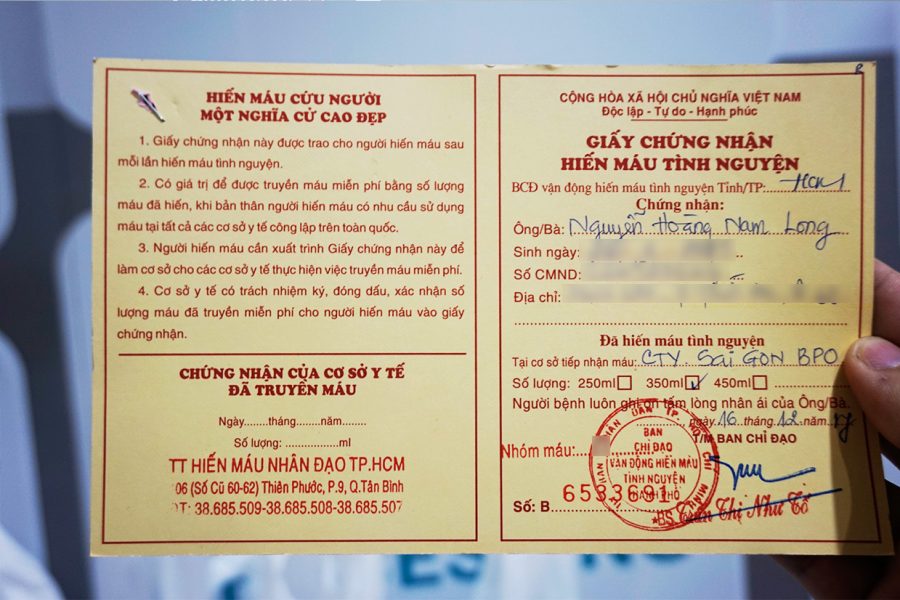 HIẾN MÁU CỨU NGƯỜI
MỘT NGHĨA CỬ CAO ĐẸP
1. Giấy chứng nhận này được trao cho người hiến máu sau
mỗi lần hiến máu tình nguyện.
2. Có giá trị để được truyền máu miễn phí bằng số lượng
máu đã hiến, khi bản thân người hiến máu có nhu cầu sử dụng
máu tại tất cả các cơ sở y tế công lập trên toàn quốc.
3. Người hiến máu cần xuất trình Giấy chứng nhận này để
làm cơ sở cho các cơ sở y tế thực hiện việc truyền máu miễn phí.
4. Cơ sở y tế có trách nhiệm ký, đóng dấu, xác nhận số
lượng máu đã truyền miễn phí cho người hiến máu vào giấy
chứng nhận.
CHỨNG NHẬN CỦA CƠ SỞ Y TẾ
ĐÃ TRUYỀN MÁU
Ngày........tháng........năm........
Số lượng: ................ml
TT HIẾN MÁU NHÂN ĐẠO TP.HCM
106 (Số Cũ 60-62) Thiên Phước, P.9, Q.Tân Bình
ĐT: 38.685.509-38.685.508-38.685.507
CỘNG HÒA XÃ HỘI CHỦ NGHĨA VIỆT NAM
Độc lập - Tự do - Hạnh phúc
GIẤY CHỨNG NHẬN
HIẾN MÁU TÌNH NGUYỆN
BCĐ vận động hiến máu tình nguyện Tỉnh/TP: HCM
Chứng nhận:
Ông/Bà: Nguyễn Hoàng Nam Long
Sinh ngày:
Số CMND:
Địa chỉ:
Đã hiến máu tình nguyện
Tại cơ sở tiếp nhận máu: CTY. Sai Gon BPO
Số lượng: 250ml 350ml 450ml
Người bệnh luôn ghi ơn tấm lòng nhân ái của Ông/Bà.
ngày 16 tháng 12 năm
T/M BAN CHỈ ĐẠO
Nhóm máu:
BAN
CHỈ ĐẠO
VẬN ĐỘNG HIẾN MÁU
TÌNH NGUYỆN
Số: B
BS. Trần Thị Như Tố